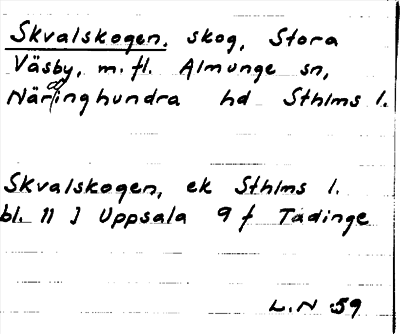 Skvalskogen, skog, Stora
Väsby, m. fl. Almunge sn,
Närdinghundra hd Sthlms l.
Skvalskogen, ek Sthlms l.
bl. 11 J Uppsala 9 f Tadinge
L.N 59